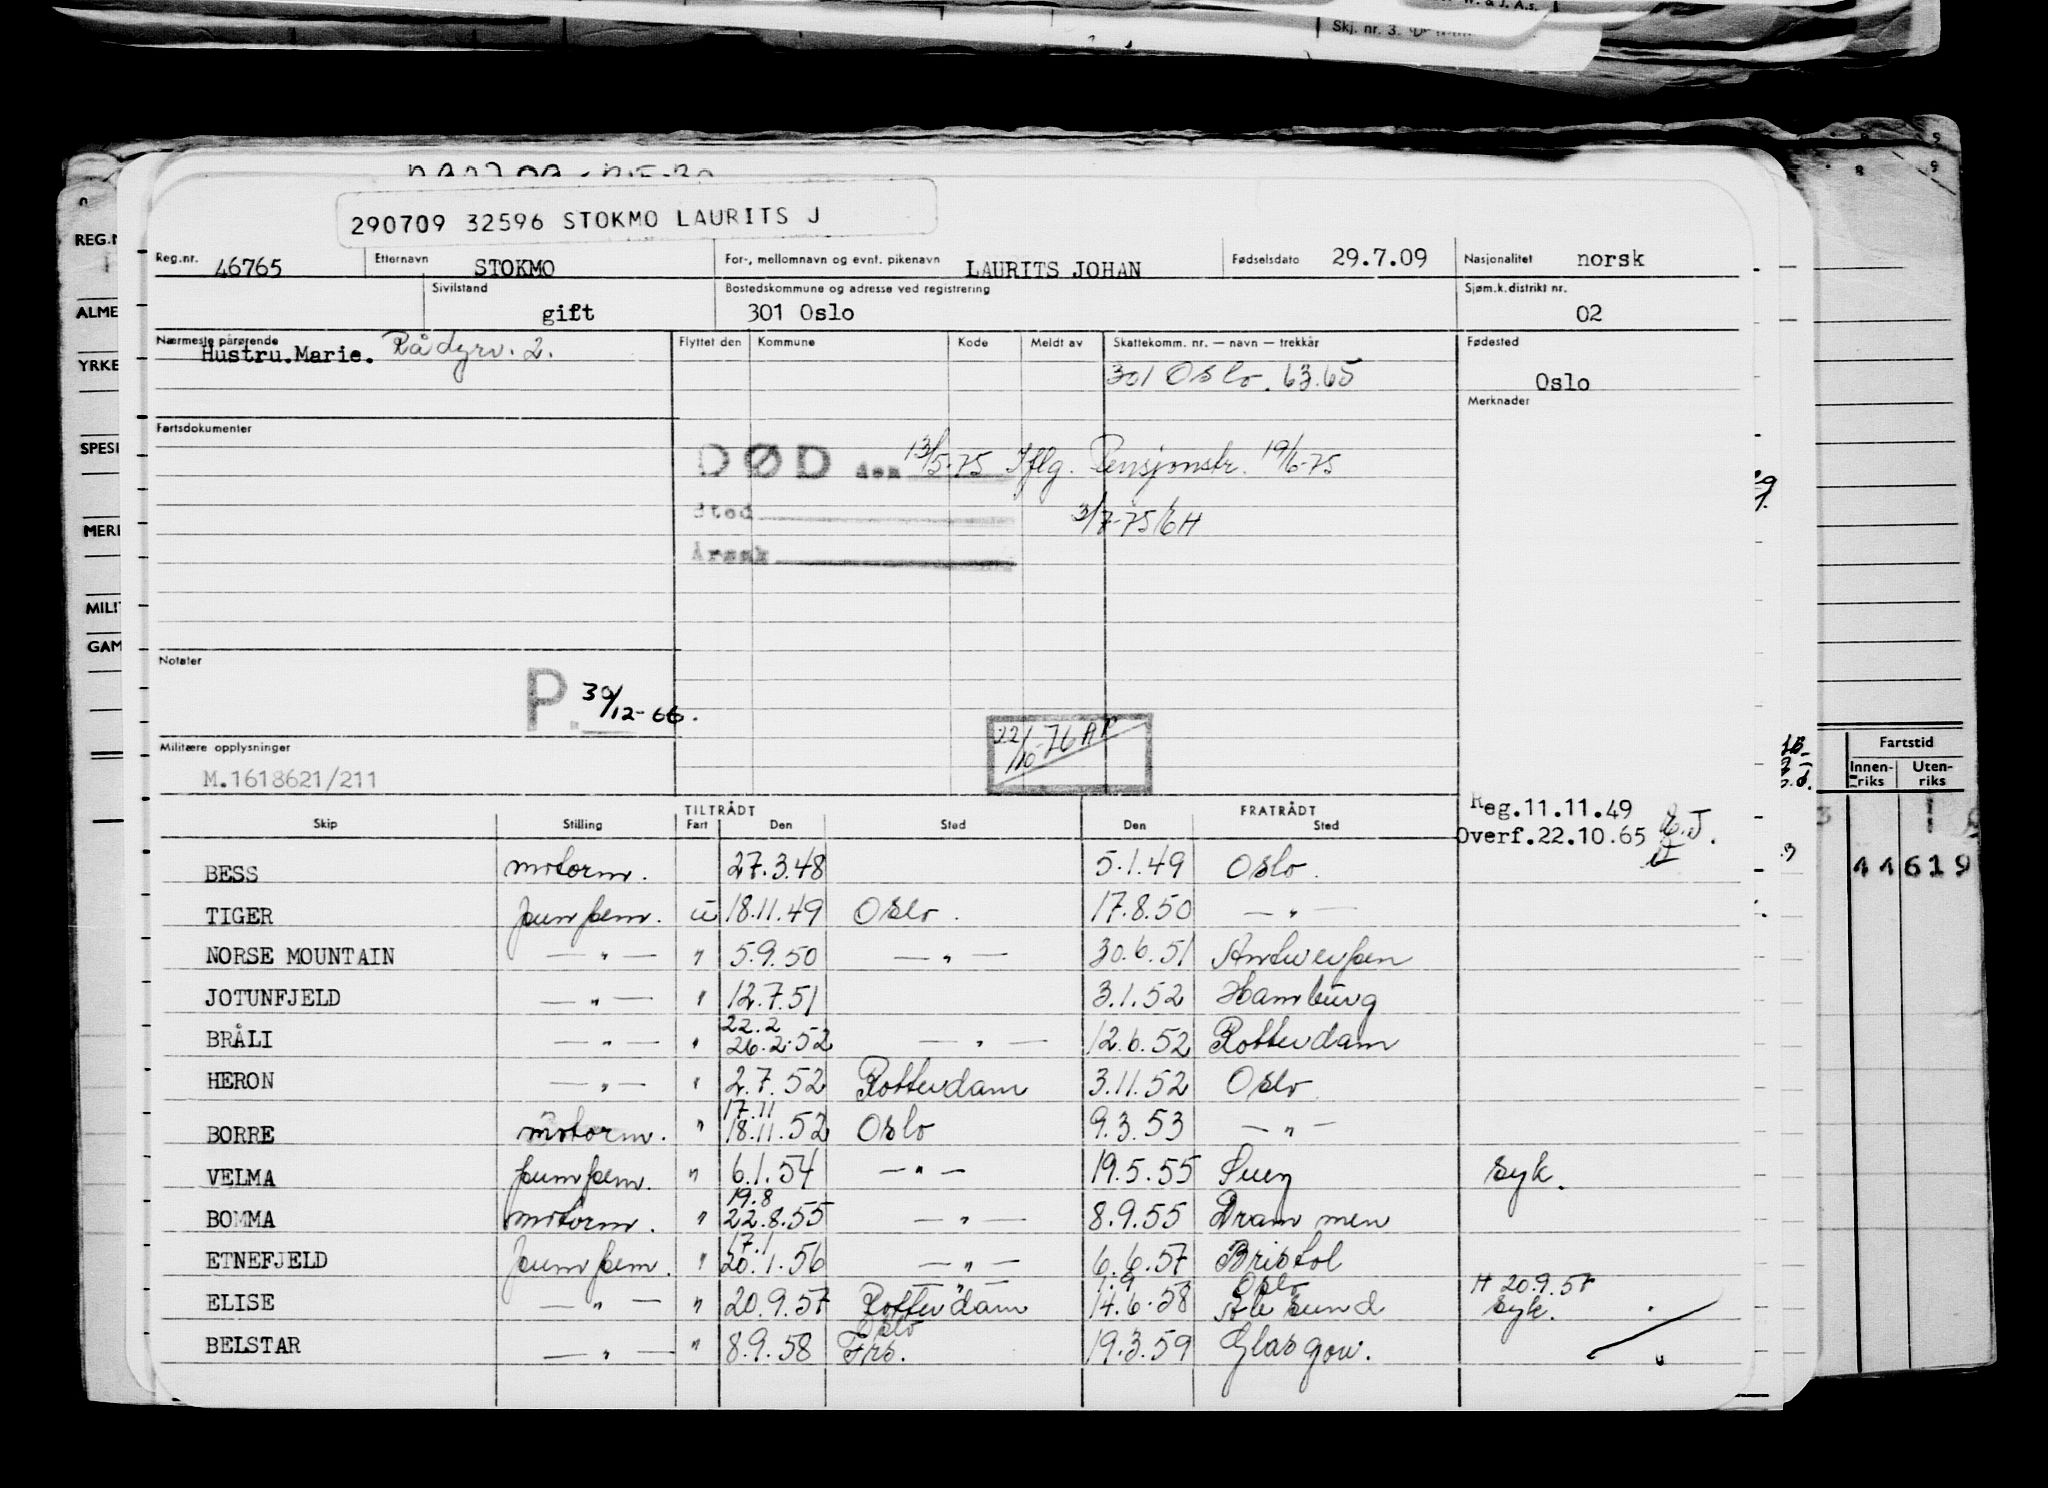 W. & J. A.s.
Skj. nr. 3.
290709 32596 STOKMO LAURITS J
Reg.nr. 46765 Etternavn STOKMO For-, mellomnavn og evnt. pikenavn LAURITS JOHAN Fødselsdato 29.7.09 Nasjonalitet norsk
Sivilstand gift Bostedskommune og adresse ved registrering 301 Oslo Sjøm.k.distrikt nr. 02
Nærmeste pårørende Hustru.Marie. Rådyrv. 2. Flyttet den Kommune Kode Meldt av Skattekomm. nr. — navn — trekkår Fødested
301 Oslo. 63.65 Oslo
Merknader
Fartsdokumenter
DØD den 13/5-75 Iflg. Pensjonstr. 19/6-75
Sted 3/7-75
Årsak
Notater
P. 30/12-66.
Militære opplysninger
M.1618621/211
22/10-76
Reg.11.11.49
Overf.22.10.65 E.J.
TILTRÅDT FRATRÅDT
Skip Stilling Fart Den Sted Den Sted
BESS motorm. 27.3.48 5.1.49 Oslo.
TIGER pumpem. u 18.11.49 Oslo. 17.8.50 — " —
NORSE MOUNTAIN — " — " 5.9.50 — " — 30.6.51 Antwerpen
JOTUNFJELD — " — " 12.7.51 3.1.52 Hamburg
22.2
BRÅLI — " — " 26.2.52 — " — 12.6.52 Rotterdam
HERON — " — " 2.7.52 Rotterdam 3.11.52 Oslo
17.11
BORRE motorm. " 18.11.52 Oslo 9.3.53 — " —
VELMA pumpem. " 6.1.54 — " — 19.5.55 Suez syk.
19.8
BOMMA motorm. " 22.8.55 — " — 8.9.55 Drammen
17.1
ETNEFJELD pumpem. " 20.1.56 — " — 6.6.57 Bristol
— " — 1.9 Oslo H 20.9.57
ELISE — " — " 20.9.57 Rotterdam 14.6.58 Ålesund syk.
Oslo
BELSTAR — " — " 8.9.58 Frs. 19.3.59 Glasgow.
REG.N
ALME
YRKE
SPESI
MERI
MILIT
GAM
Fartstid
Innen-riks Uten-riks
11 619